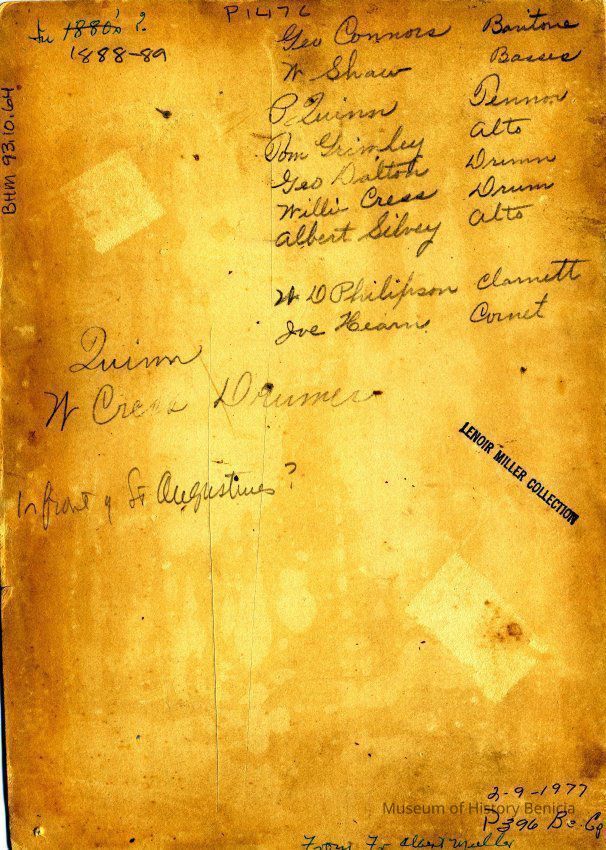 P1476
1880's ?
1888-89
BHM 93.10.64
Geo Connors Baritone
W Shaw Basses
P Quinn Tennor
Tom Grimley Alto
Geo Dalton Drumn
Willie Cress Drum
Albert Silvey Alto
W D Philipson Clarnett
Joe Hearn Cornet
Quinn
W Cress Drumer
In front of St Augustines?
LENOIR MILLER COLLECTION
2-9-1977
Museum of History Benicia
P396
From Fr Albert Muller